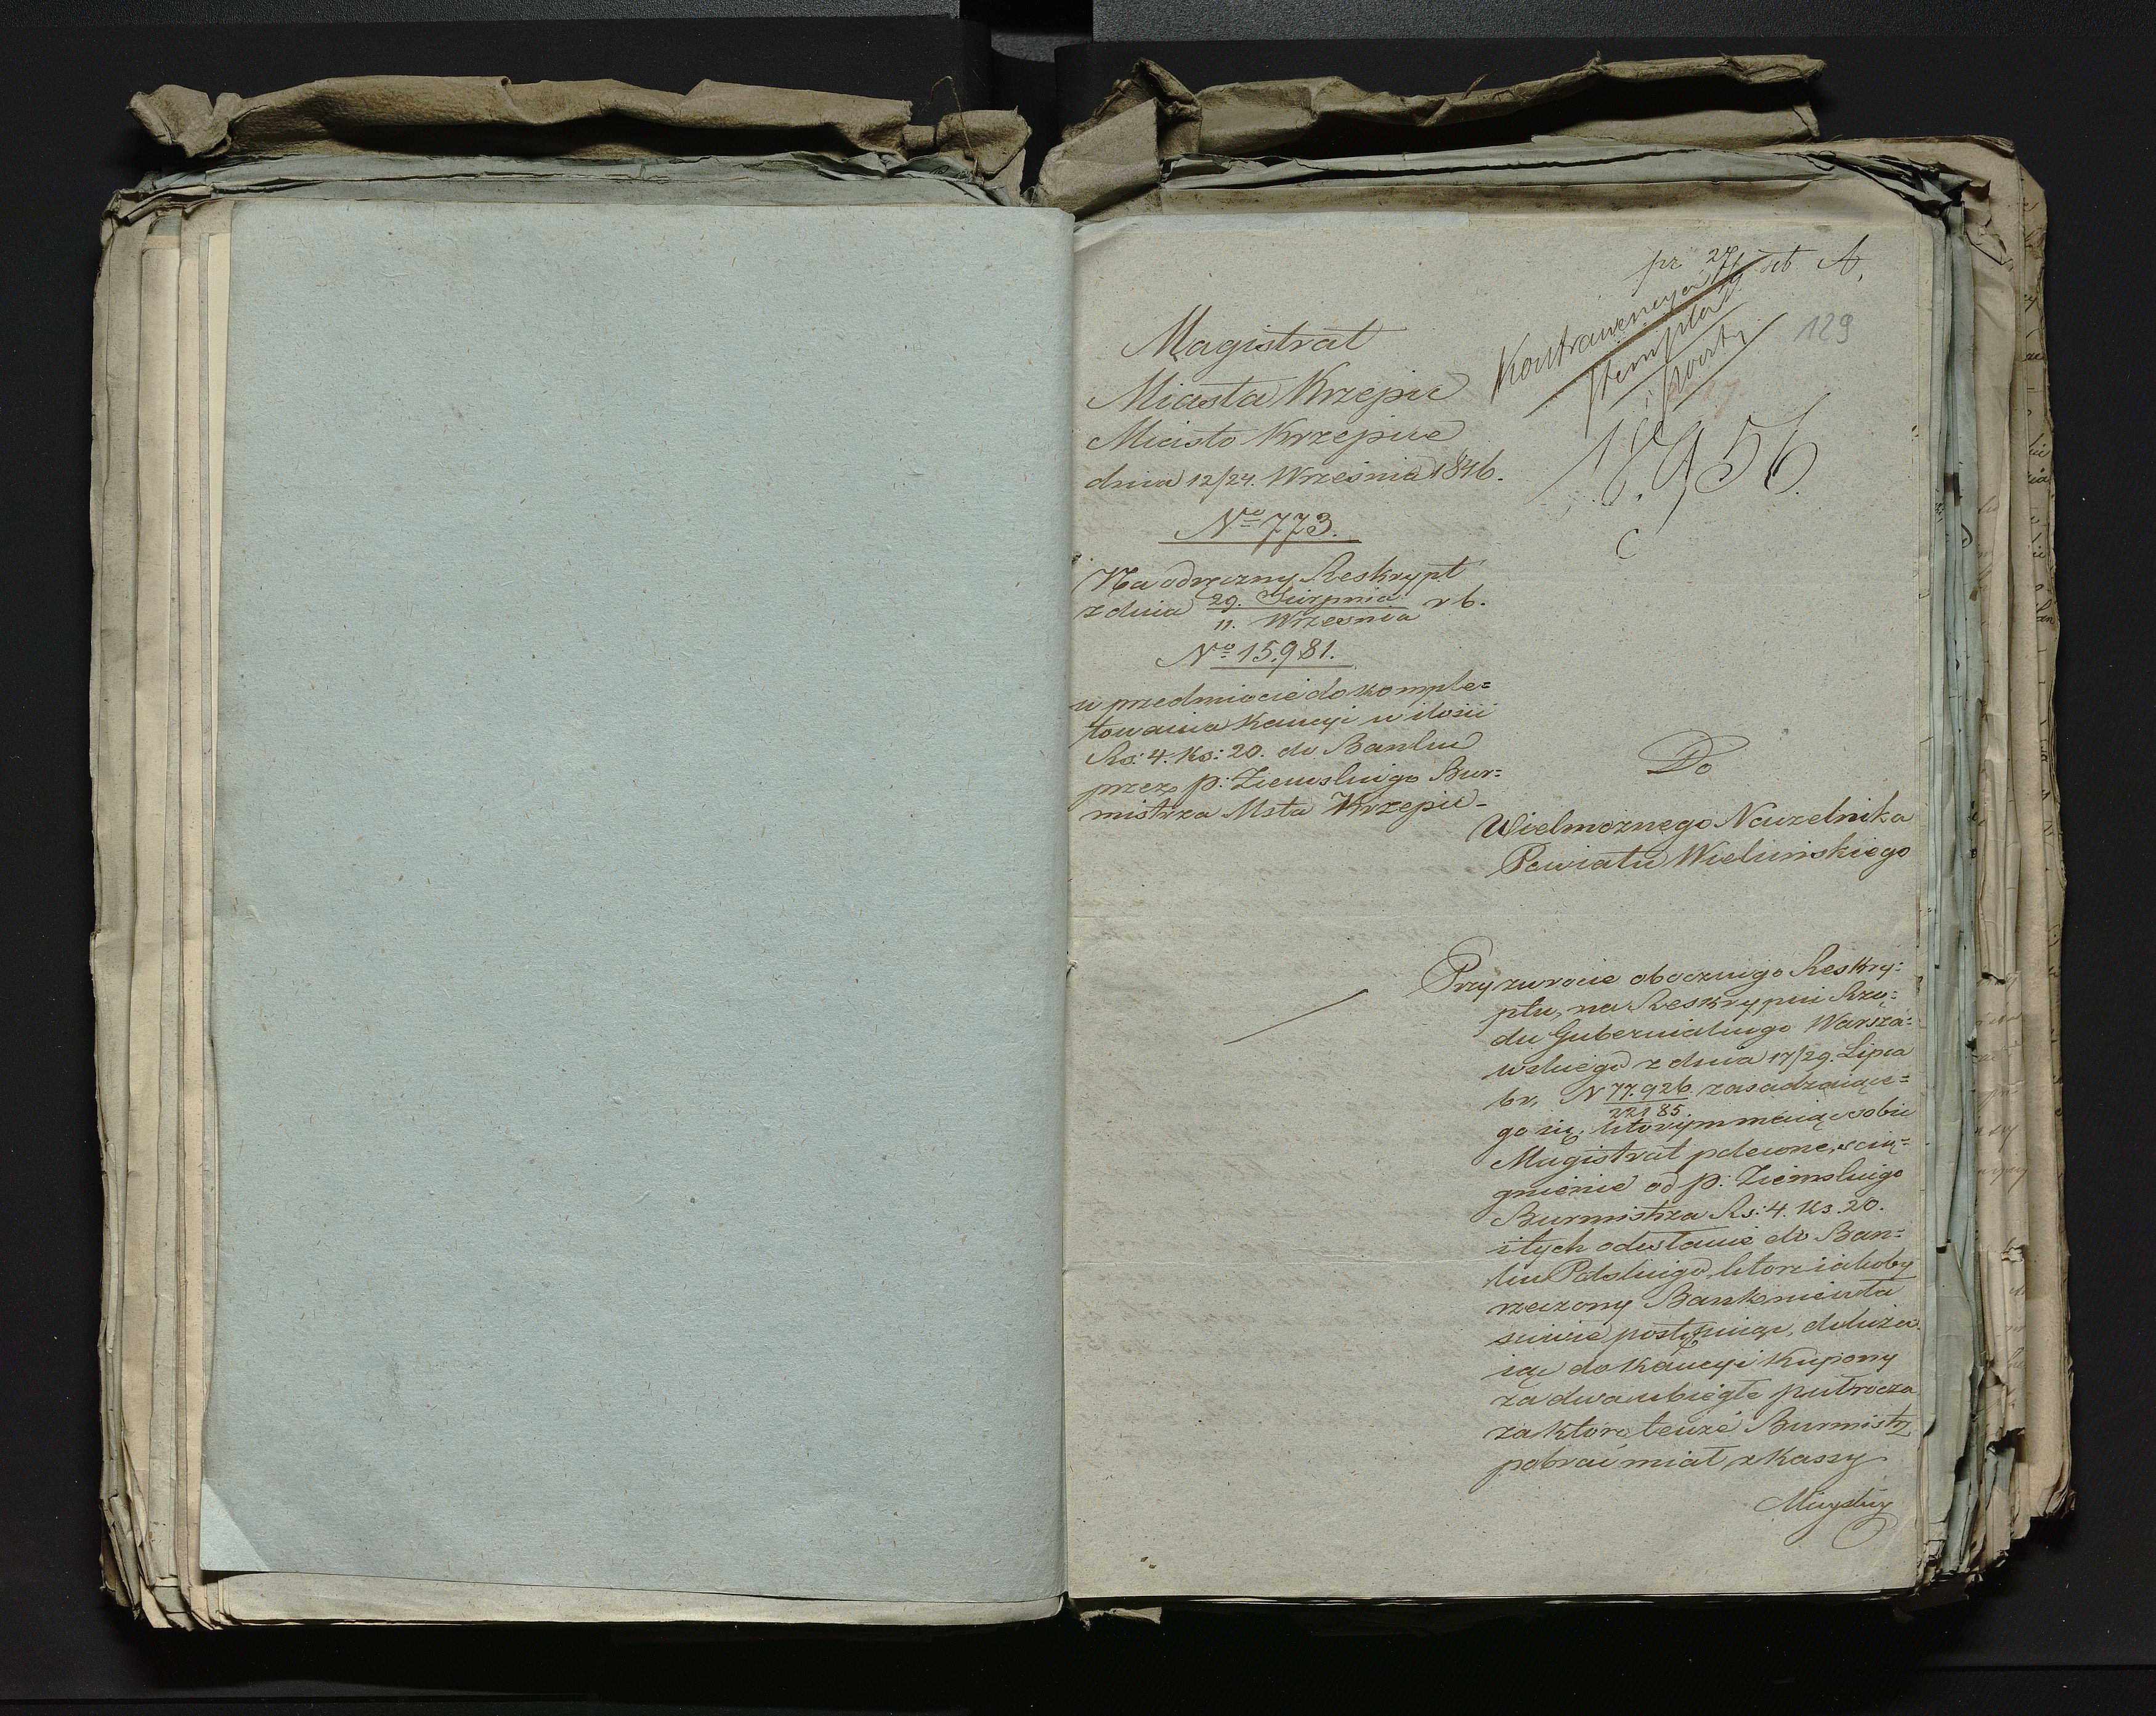 129
Magistrat
Miasta Krzepic
Miasto Krzepice
dnia 12/24. Wrzesnia 1846.
No 773.
Na odręczny Reskrypt
z dnia 29. Sierpnia / 11. Wrzesnia r b.
No 15.981.
w przedmiocie dokomple=
towania kaucyi w ilosci
Rs: 4. ks: 20. do Banku
przez p: Ziemskiego Bur=
mistrza Msta Krzepic -
Kontrawencya
stempla
i porty
16.956.
Do
Wielmożnego Naczelnika
Powiatu Wieluńskiego
Przy zwrocie obocznego Reskry=
ptu, na Reskrypcie Rzą=
du Gubernialnego Warsza=
wskiego z dnia 17/29. Lipca
br. N 77.926 / 22185. zasadzaiące=
go się, którym maiąc sobie
Magistrat polecone, scią=
gnienie od p: Ziemskiego
Burmistrza Rs: 4. ks. 20.
i tych odesłanie do Ban=
ku Polskiego, które iakoby
rzeczony Bank niewła
sciwie postępuiąc, dołicza
iąc do kaucyi kupony
za dwa ubiegłe półrocza
za które tenże Burmistrz
pobrać miał z kassy
Mieyskiey